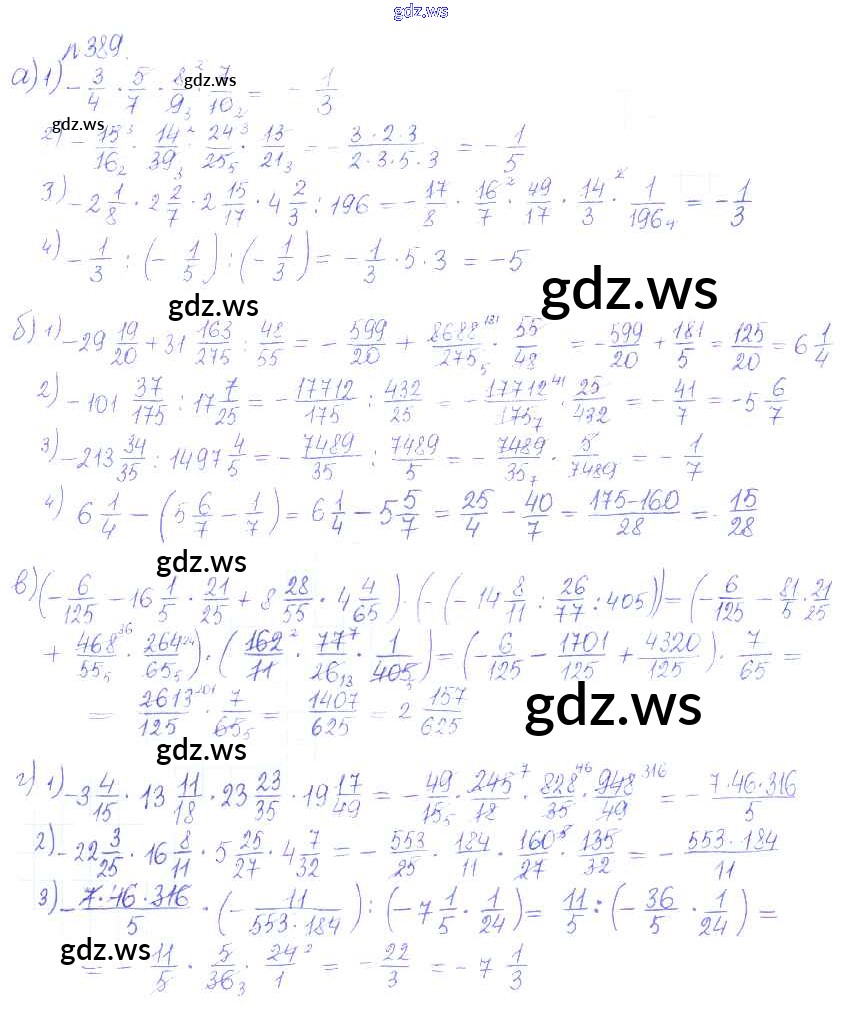 gdz.ws
№389.
а) 1) -3/4 · 5/7 · 8/9₃ ² · 7/10₂ = -1/3
gdz.ws
gdz.ws
2) -15³/16₂ · 14²/39₃ · 24³/25₅ · 13/21₃ = -3·2·3/2·3·5·3 = -1/5
3) -2 1/8 · 2 2/7 · 2 15/17 · 4 2/3 : 196 = -17/8 · 16²/7 · 49/17 · 14²/3 · 1/196₄ = -1/3
4) -1/3 : (-1/5) : (-1/3) = -1/3 · 5 · 3 = -5
gdz.ws
gdz.ws
б) 1) -29 19/20 + 31 163/275 : 48/55 = -599/20 + 8688¹⁸¹/275₅ · 55/48 = -599/20 + 181/5 = 125/20 = 6 1/4
2) -101 37/175 : 17 7/25 = -17712/175 : 432/25 = -17712⁴¹/175₇ · 25/432 = -41/7 = -5 6/7
3) -213 34/35 : 1497 4/5 = -7489/35 : 7489/5 = -7489/35₇ · 5/7489 = -1/7
4) 6 1/4 - (5 6/7 - 1/7) = 6 1/4 - 5 5/7 = 25/4 - 40/7 = 175-160/28 = 15/28
gdz.ws
в) (-6/125 - 16 1/5 · 21/25 + 8 28/55 · 4 4/65) · (-(-14 8/11 : 26/77 : 405)) = (-6/125 - 81/5 · 21/25
+ 468³⁶/55₅ · 264²⁴/65₅) · (162²/11 · 77⁷/26₁₃ · 1/405₅) = (-6/125 - 1701/125 + 4320/125) · 7/65 =
= 2613²⁰¹/125 · 7/65₅ = 1407/625 = 2 157/625
gdz.ws
gdz.ws
г) 1) -3 4/15 · 13 11/18 · 23 23/35 · 19 17/49 = -49/15₅ · 245⁷/18 · 828⁴⁶/35 · 948³¹⁶/49 = -7·46·316/5
2) -22 3/25 · 16 8/11 · 5 25/27 · 4 7/32 = -553/25 · 184/11 · 160⁵/27 · 135/32 = -553·184/11
3) -7·46·316/5 · (-11/553·184) : (-7 1/5 · 1/24) = 11/5 : (-36/5 · 1/24) =
gdz.ws
= -11/5 · 5/36₃ · 24²/1 = -22/3 = -7 1/3